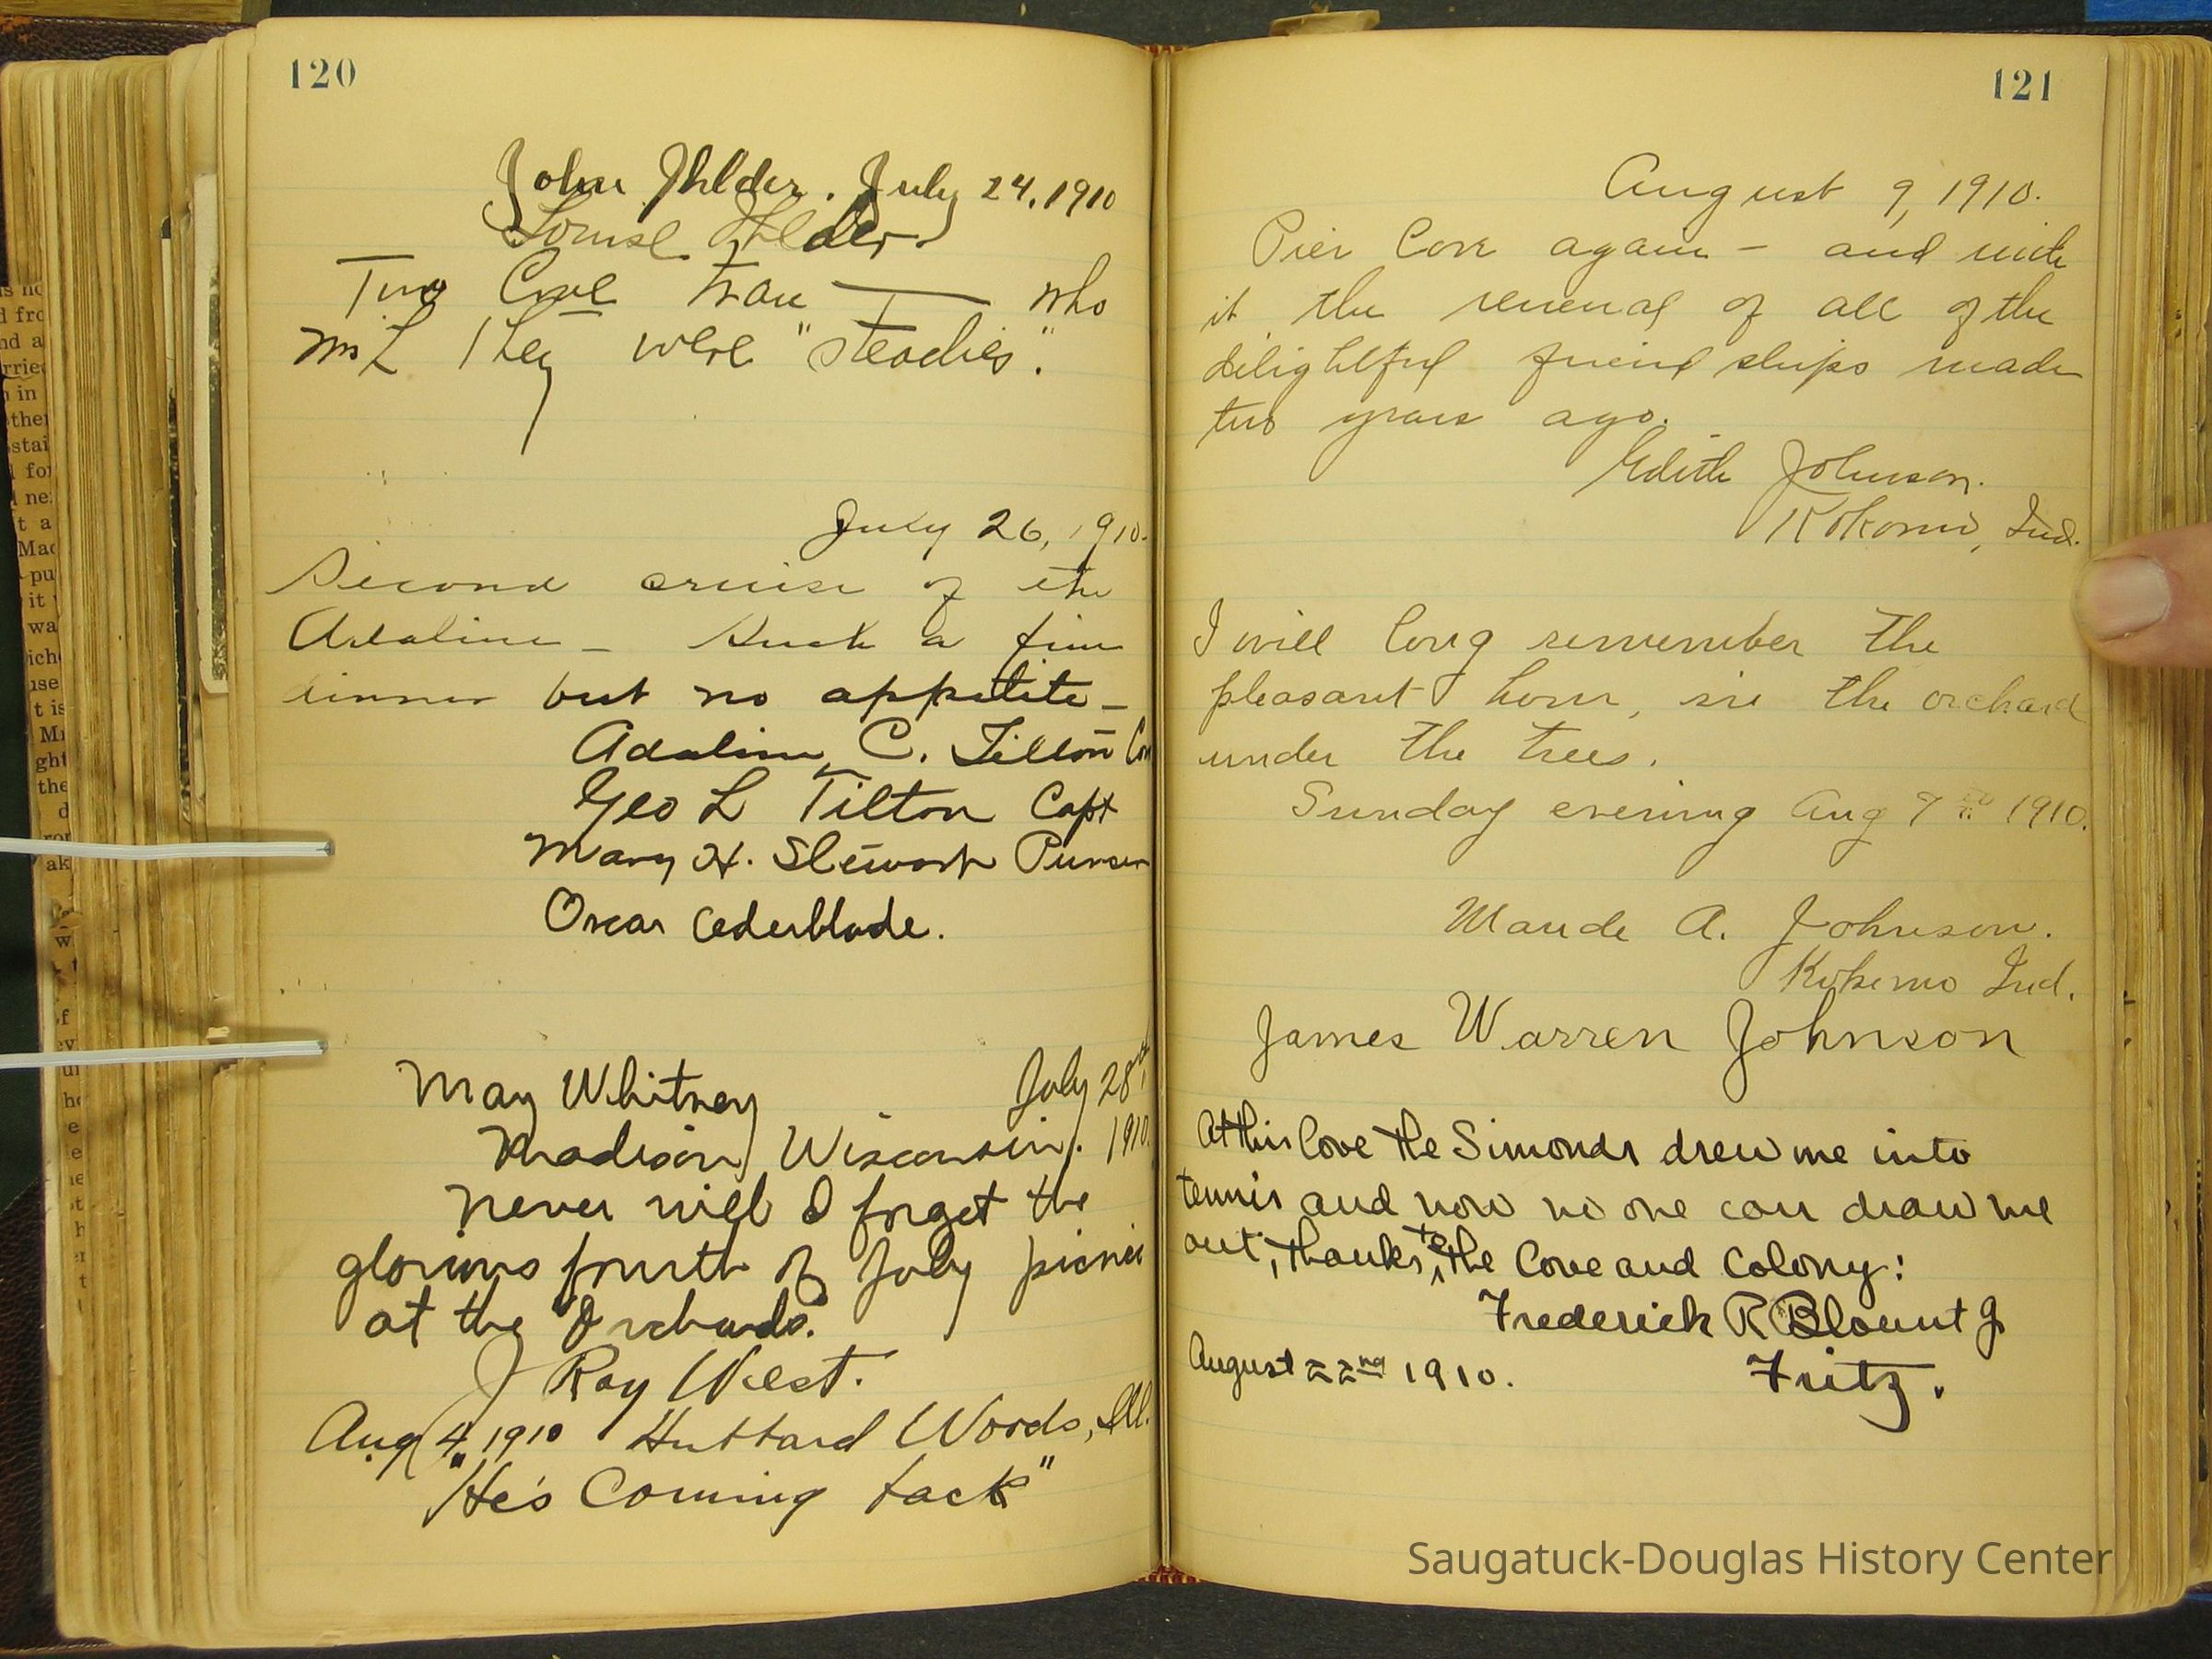 120
John Ihlder. July 24, 1910
Louise Ihlder.
Two Cove — who
they were "steadies".
July 26, 1910.
Second cruise of the
Adaline — Such a fine
dinner but no appetite —
Adaline C. Tilton
Geo L Tilton Capt
Mary H. Stewart Purser
Oscar Cederblade.
May Whitney July 28th
Madison, Wisconsin. 1910.
Never will I forget the
glorious fourth of July picnic
at the "Orchards".
J Roy West.
Aug 4, 1910 Hubbard Woods, Ill.
"He's Coming back"
121
August 9, 1910.
Pier Cove again — and with
it the renewal of all of the
delightful friendships made
two years ago.
Edith Johnson.
Kokomo, Ind.
I will long remember the
pleasant hour, in the orchard
under the trees.
Sunday evening Aug 7th 1910.
Maude A. Johnson.
Kokomo Ind.
James Warren Johnson
At this Cove the Simonds drew me into
tennis and now no one can draw me
out, thanks, to the Cove and Colony:
Frederick R Blount Jr
August 22nd 1910. Fritz.
Saugatuck-Douglas History Center